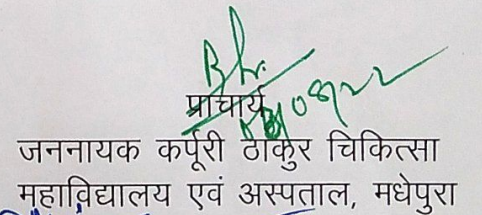 प्राचार्य
जननायक कर्पूरी ठाकुर चिकित्सा
महाविद्यालय एवं अस्पताल, मधेपुरा